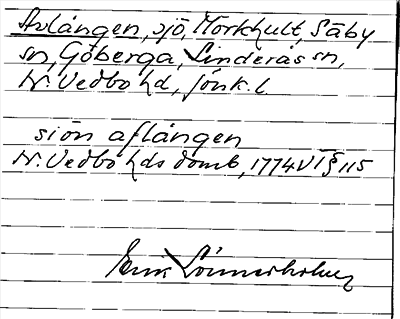 Avlången, sjö, Morkhult, Säby
sn, Göberga, Linderås sn,
N. Vedbo hd, Jönk. l.
siön aflången
N. Vedbo hds domb, 1774 VI § 115
Erik Lönnerholm